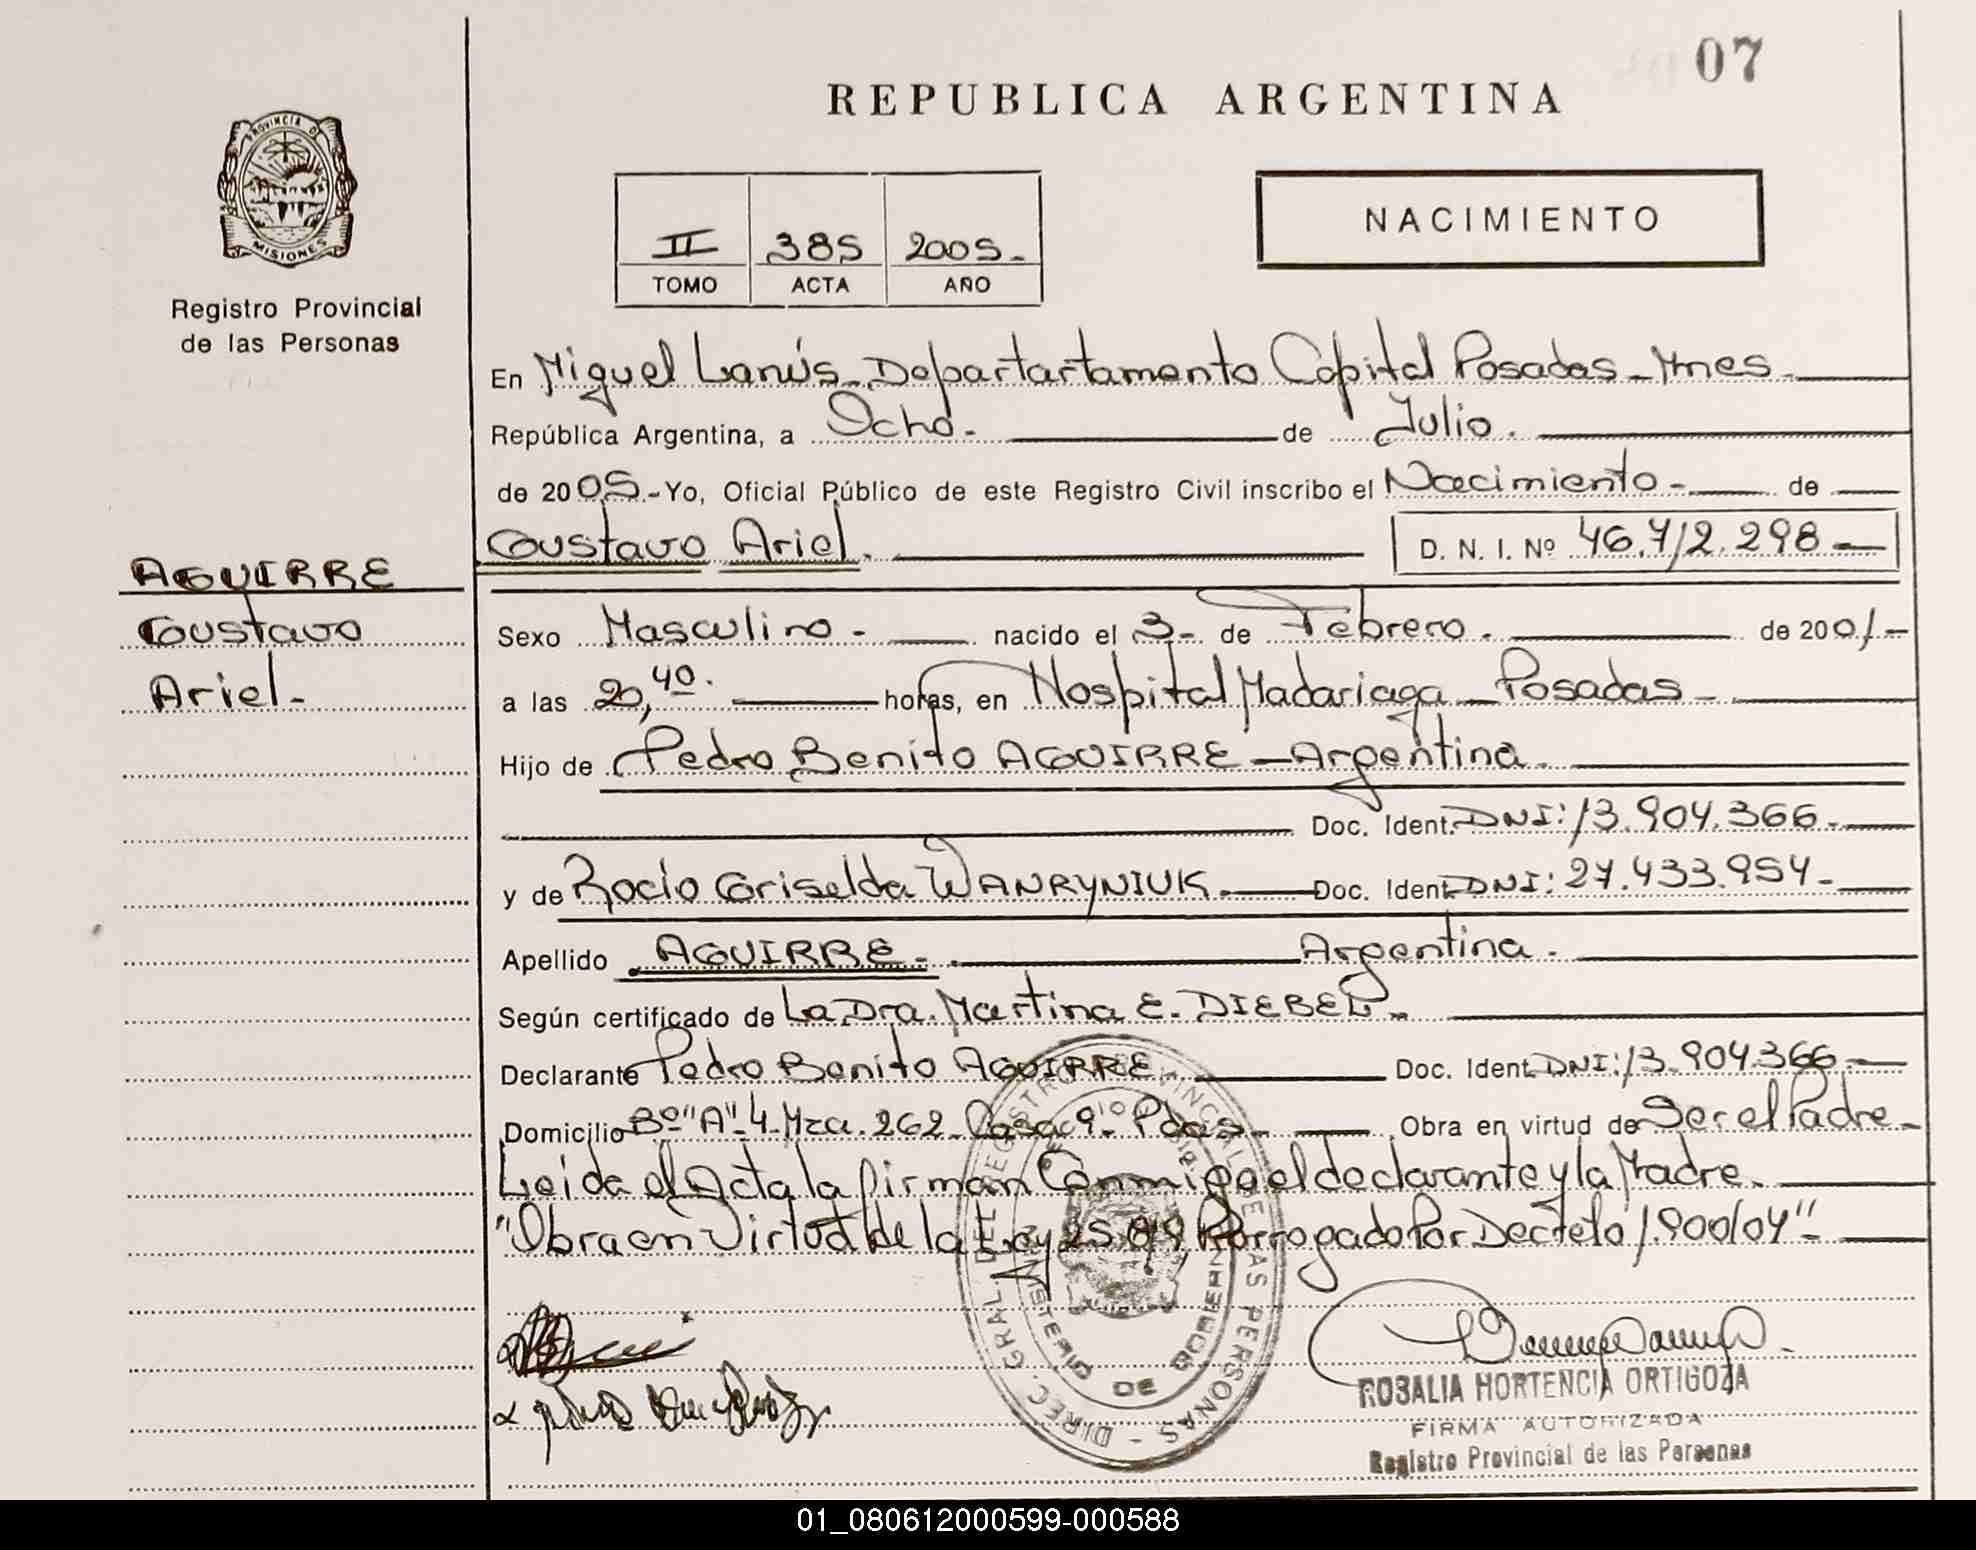 07
REPUBLICA ARGENTINA
PROVINCIA DE
MISIONES
Registro Provincial
de las Personas
II 385 2005.-
TOMO ACTA AÑO
NACIMIENTO
En Miguel Lanús - Departartamento Capital Posadas - Mnes.
República Argentina, a Ocho.- de Julio.
de 2005.- Yo, Oficial Público de este Registro Civil inscribo el Nacimiento - de
Gustavo Ariel. D. N. I. Nº 46.712.298 -
AGUIRRE
Gustavo
Ariel-
Sexo Masculino - nacido el 3- de Febrero. de 2001-
a las 20,40. horas, en Hospital Madariaga - Posadas -
Hijo de Pedro Benito AGUIRRE - Argentina.
Doc. Ident. DNI: 13.904.366.
y de Rocío Griselda WANRYNIUK. Doc. Ident. DNI: 27.433.954-
Apellido AGUIRRE - Argentina.
Según certificado de La Dra. Martina E. DIEBEL.
Declarante Pedro Benito AGUIRRE Doc. Ident. DNI: 13.904.366.-
Domicilio Bº "A"-4-Mza. 262-Casa 9- Pdas- Obra en virtud de Ser el Padre-
Leida el Acta la firman Conmigo el declarante y la Madre.
"Obra en Virtud de la Ley 25.819 Porrogado Por Decreto 1.900/04"-
DIREC. GRAL. DE REGISTRO PROVINCIAL DE LAS PERSONAS -
ROSALIA HORTENCIA ORTIGOZA
FIRMA AUTORIZADA
Registro Provincial de las Personas
01_080612000599-000588